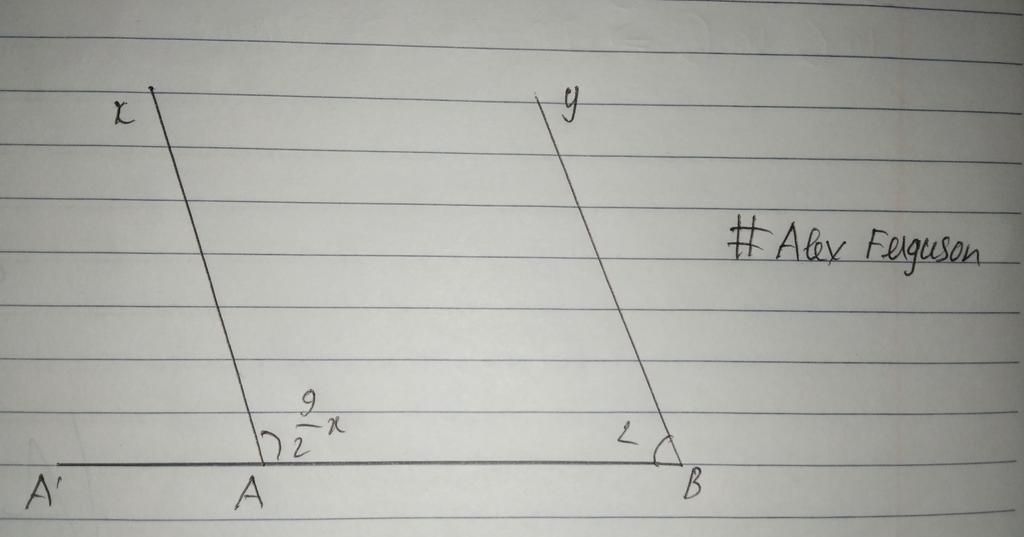 x y
# Alex Ferguson
9/2 x
A' A B